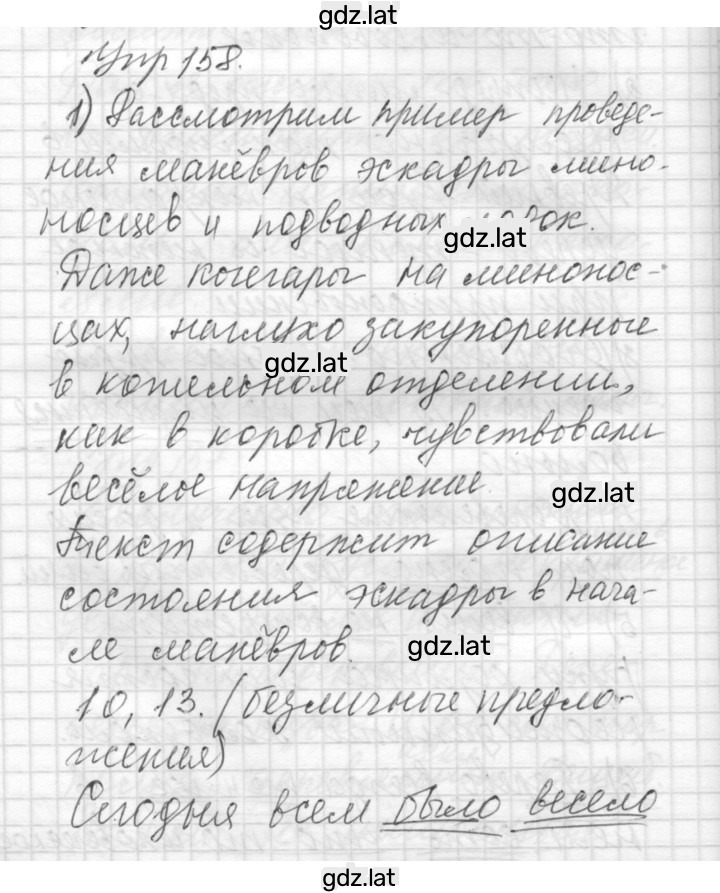 gdz.lat
Упр 158.
1) Рассмотрим пример проведе-
ния манёвров эскадры мино-
носцев и подводных
gdz.lat
Даже кочегары на минонос-
цах, наглухо закупоренные
gdz.lat
в котельном отделении,
как в коробке, чувствовали
весёлое напряжение
gdz.lat
Текст содержит описание
состояния эскадры в нача-
ле манёвров.
gdz.lat
10, 13. (безличные предло-
жения)
Сегодня всем было весело
gdz.lat